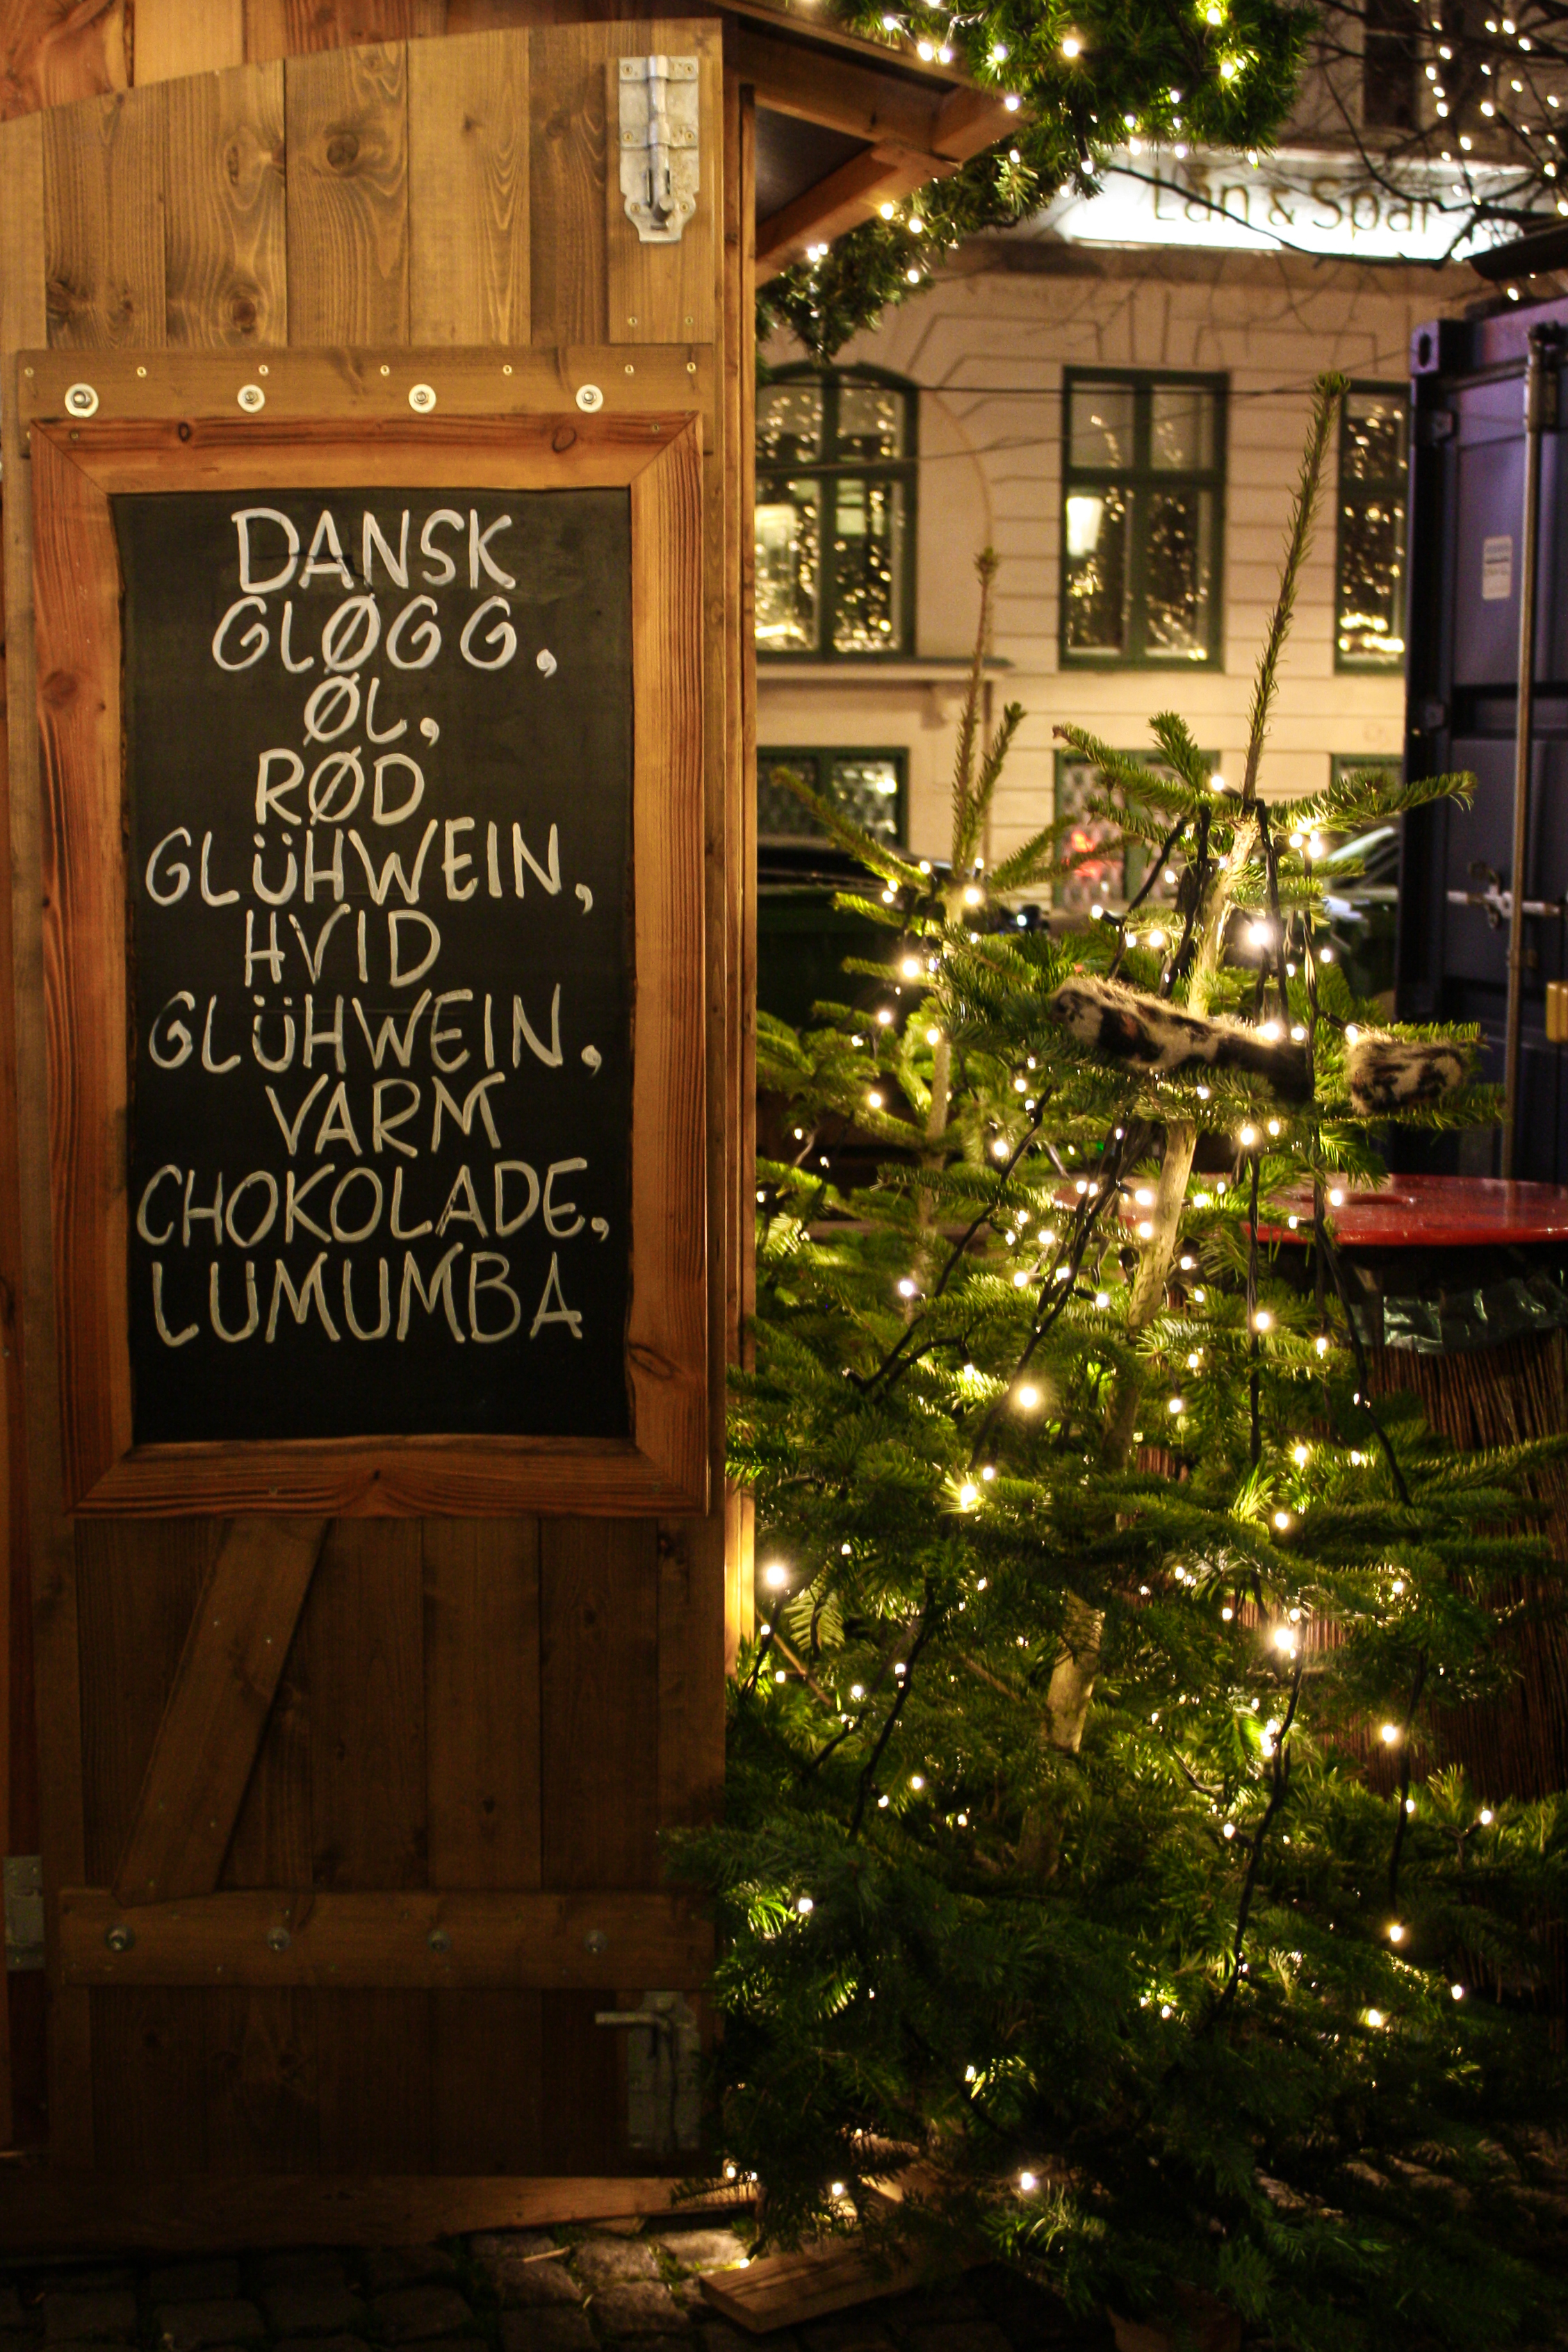 DANSK
GLØGG,
ØL,
RØD
GLÜHWEIN,
HVID
GLÜHWEIN,
VARM
CHOKOLADE,
LUMUMBA
Lån & Spar